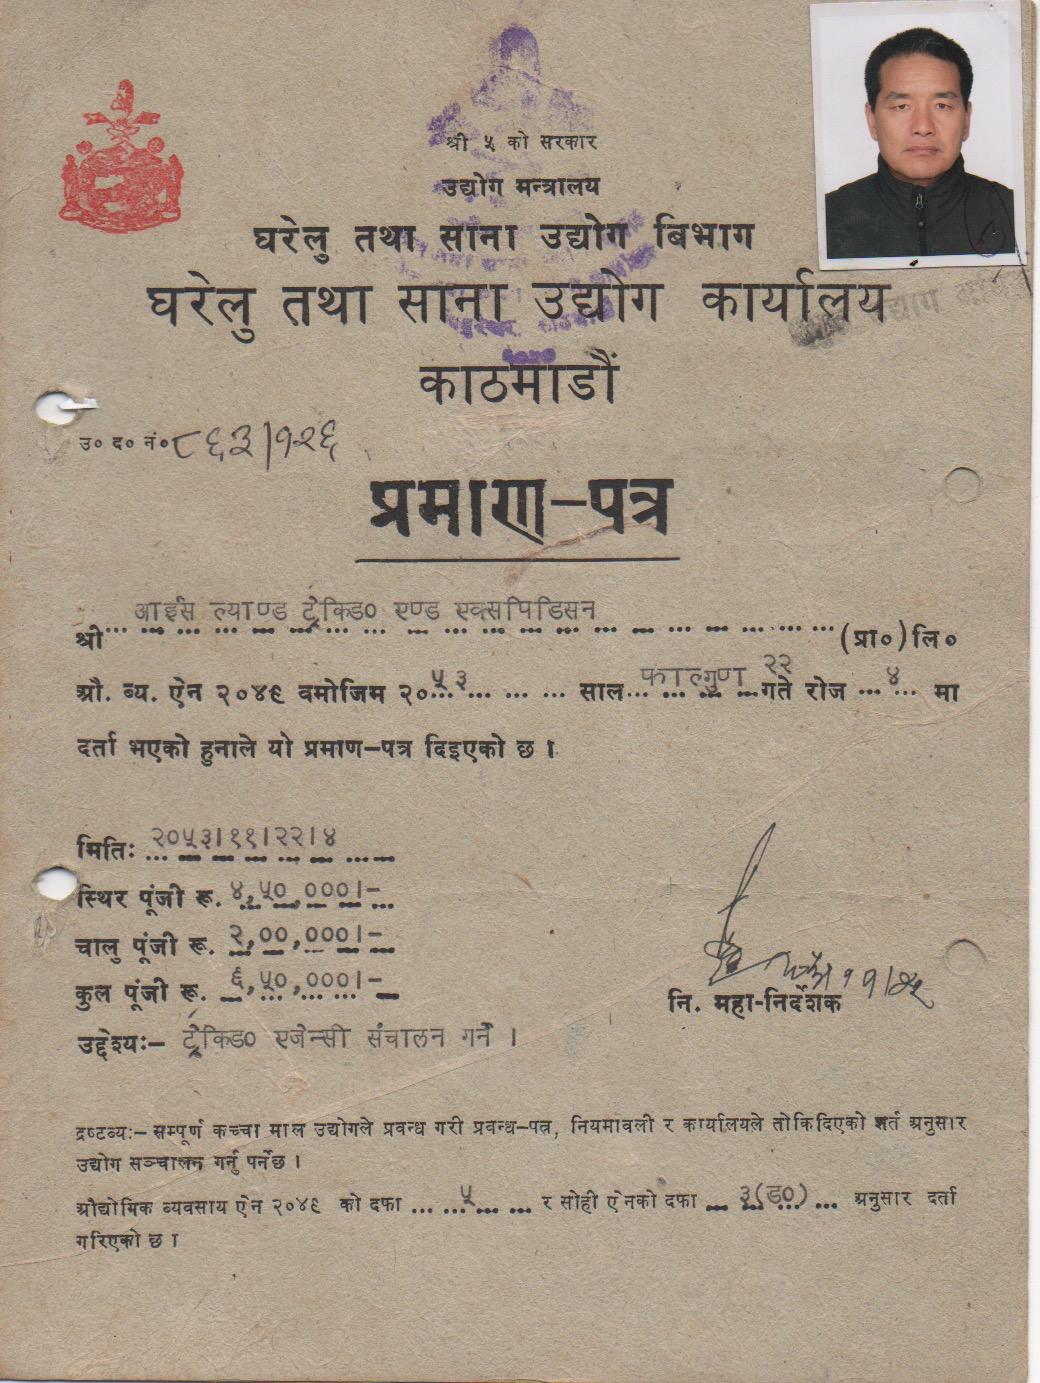 श्री ५ को सरकार
उद्योग मन्त्रालय
घरेलु तथा साना उद्योग बिभाग
घरेलु तथा साना उद्योग कार्यालय
काठमाडौं
उ० द० नं० ८६३/१२६
प्रमाण-पत्र
श्री आईस ल्याण्ड ट्रेकिङ० एण्ड एक्सपिडिसन (प्रा०) लि०
औ. ब्य. ऐन २०४९ वमोजिम २० ५३ साल फाल्गुण २२ गते रोज ४ मा
दर्ता भएको हुनाले यो प्रमाण-पत्र दिइएको छ ।
मितिः २०५३।११।२२।४
स्थिर पूंजी रू. ४,५०,०००।-
चालु पूंजी रू. २,००,०००।-
कुल पूंजी रू. ६,५०,०००।-
नि. महा-निर्देशक
उद्देश्यः- ट्रेकिङ० एजेन्सी संचालन गर्ने ।
द्रष्टब्यः- सम्पूर्ण कच्चा माल उद्योगले प्रवन्ध गरी प्रवन्ध-पत्र, नियमावली र कार्यालयले तोकिदिएको शर्त अनुसार
उद्योग सञ्चालन गर्नु पर्नेछ ।
औद्योगिक ब्यवसाय ऐन २०४९ को दफा ५ र सोही ऐनको दफा ३(ङ०) अनुसार दर्ता
गरिएको छ ।